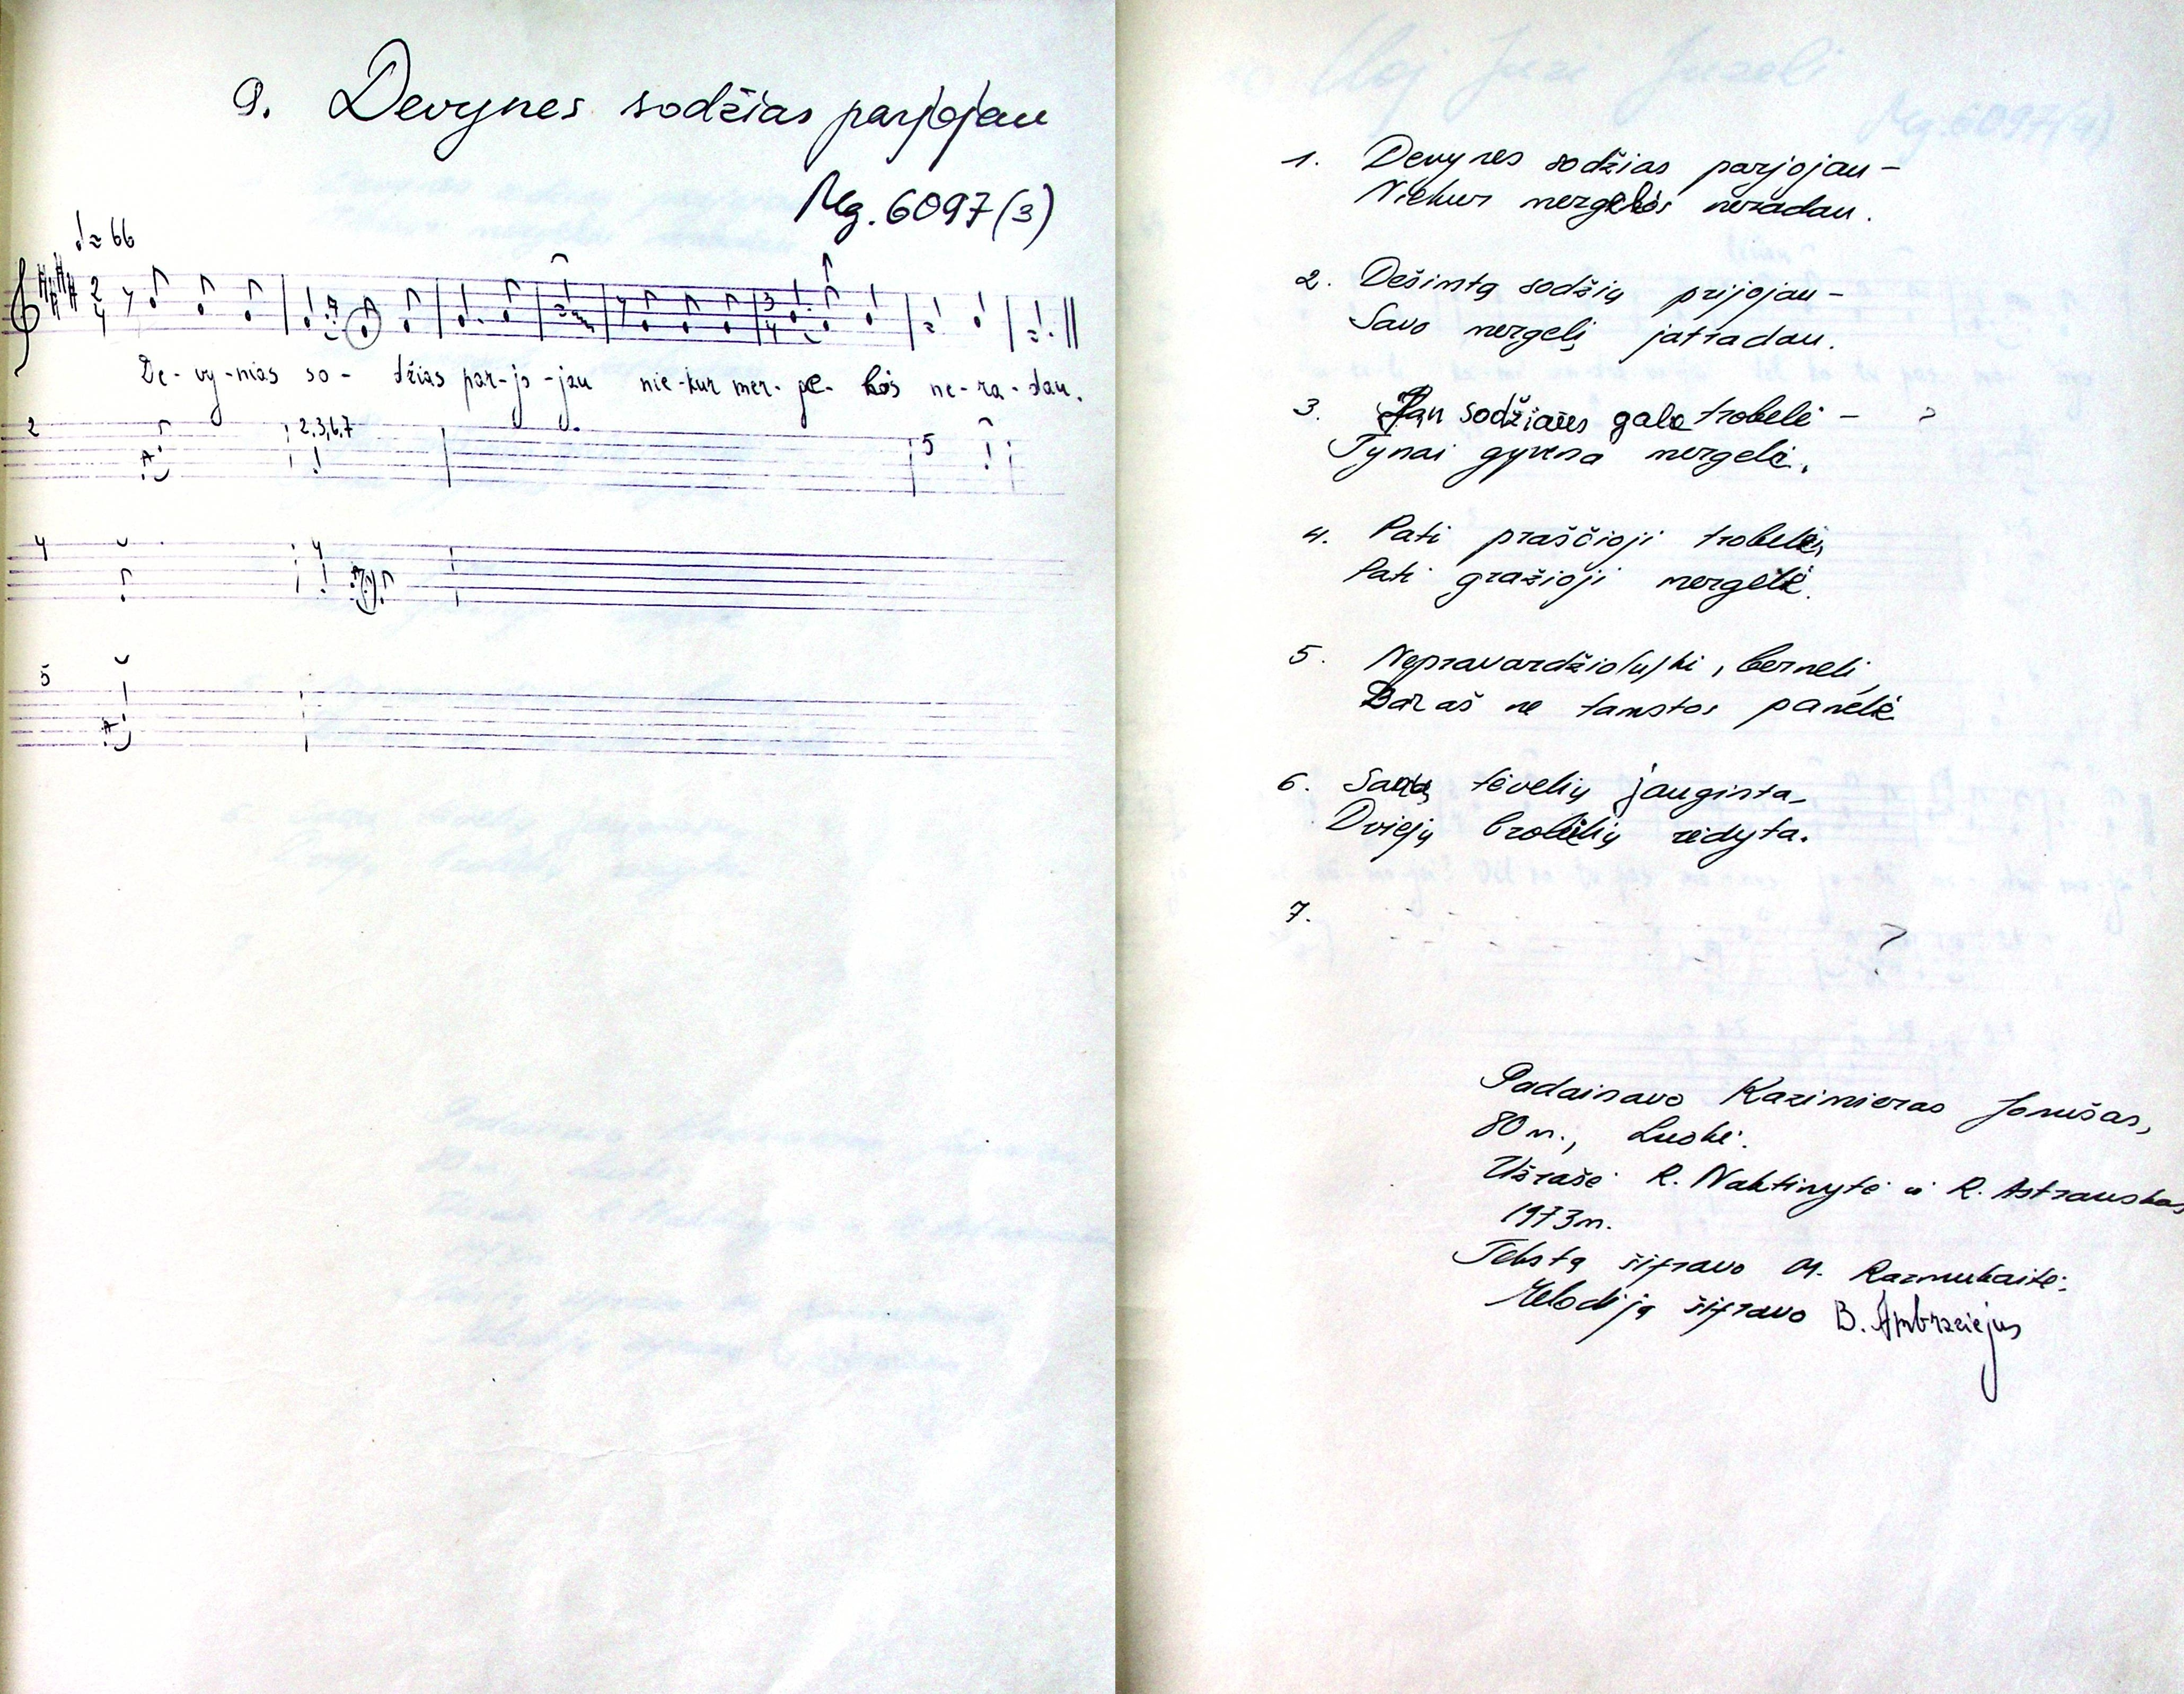 9. Devynes sodžias parjojau
Mg. 6097(3)
♩≈66
De-vy-nias so- džias par-jo-jau nie-kur mer-ge- kos ne-ra-dau.
2 2,3,6,7 5
4 4
5
1. Devynes sodžias parjojau –
Niekur mergekos neradau.
2. Dešimtą sodžių prijojau –
Savo mergelį jatradau.
3. sodžiaus galo trobelė – ?
Tynai gyvena mergelė.
4. Pati praščioji trobelė,
Pati gražioji mergelė.
5. Nepravardžio(u)ki, berneli,
Dar aš ne tamstos panelė.
6. tėvelių jauginta,
Dviejų brolelių rėdyta.
7. ?
Padainavo Kazimieras Jonušas,
80 m., Luokė.
Užrašė R. Naktinytė ir R. Astrauskas
1973 m.
Tekstą šifravo M. Razmukaitė.
Melodiją šifravo B. Ambraziejus